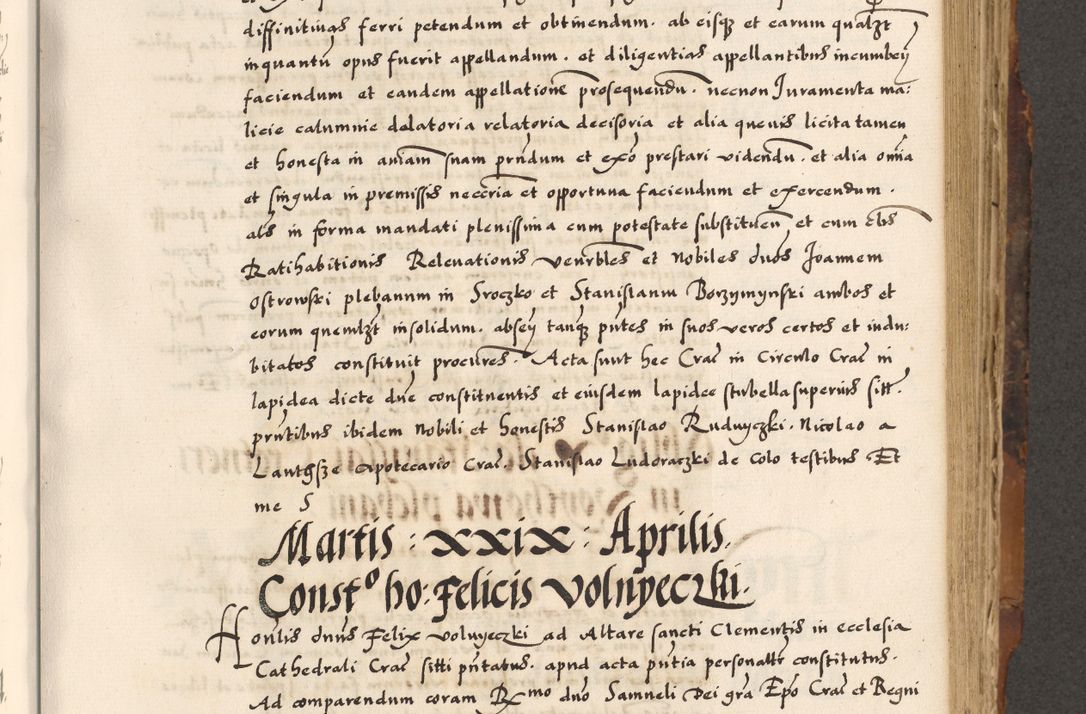 diffinitivas ferri petendum et obtinendum. ab eisq3 et earum qualzt
inquantu opus fuerit appellandum. et diligentias appellantibus incumbeñ
faciendum et eandem appellatione prosequendu. necnon Iuramenta ma:
licie calumnie delatoria relatoria decisoria et alia quevis licita tamen
et honesta in aniam suam prndum et exo prestari videndu. et alia omia
et singula in premissis neccria et opportuna faciendum et exercendum.
als in forma mandati plenissima cum potestate substitueñ et cum cls
Ratihabitionis Relevationis venrbles et nobiles dnos Joannem
Ostrowski plebanum in Sroczko et Stanislaum Borzymynski ambos et
eorum quemlzt insolidum. abseñ tanq3 pntes in suos veros certos et indu:
bitatos constituit procures. Acta sunt hec Crac in Circulo Crac in
lapidea dicte dne constituentis et eiusdem lapidee stubella superius sitt.
pntibus ibidem nobili et honestis Stanislao Rudnyczki. Nicolao a
apotecario Crac. Stanislao Ludoraczki de Colo testibus Et
me S
Martis : xxix : Aprilis.
Constº ho: Felicis Volnyeczki.
Honlis dnus Felix volnyeczki ad Altare sancti Clementis in ecclesia
Cathedrali Crac sitti pntatus. apud acta pntia personalr constitutus.
Ad comparendum coram Rmo dno Samueli Dei gra Epo Crac et Regni